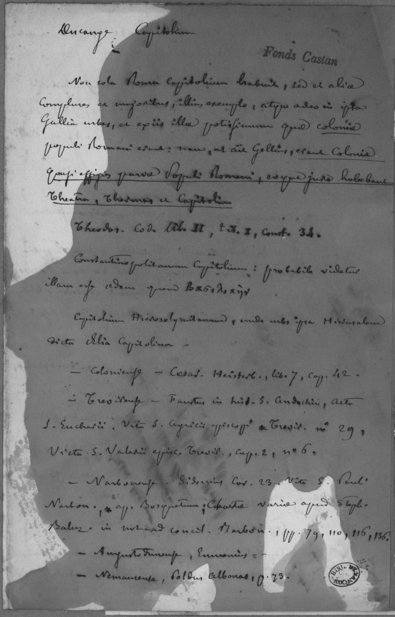 Ducange, Capitolium
Fonds Castan
Non sola Roma Capitolium habuit, sed et aliæ
complures ac majoribus, illius exemplo, atque adeo in ipsa
Gallia urbes, et ex iis illæ potissimum quæ coloniæ
populi Romani erant; nam, ut ait Gellius, erant Coloniæ
quasi effigies parvæ Populi Romani, eoque jure habebant
Theatra, Thermas et Capitolia
Theodos. Code lib. II, tit. I, const. 34.
Constantinopolitanum Capitolium: probabile videtur
illam esse ædem quam
Capitolium Hierosolymitanum, unde urbs ipsa Hierusalem
dicta Ælia Capitolina —
— Coloniense — Cæsar. Heisterb., lib. 7, cap. 42.
in Trevirense — Faustus in hist. S. Andochii, Acta
S. Eucharii, Vita S. Agricii episcopi Trevir. nº 29,
Vita S. Valerii episc. Trevir., cap. 2, nº 6.
— Narbonense — Sidonius Car. 23. Vita S. Pauli
Narbon. ap. Bosquetum; Chartæ variæ apud Steph.
Baluz. in not. ad concil. Narbon., pp. 79, 110, 116, 136.
— Augustodunense, Eumenius
— Nemausense, Poldus Albenas, p. 73.